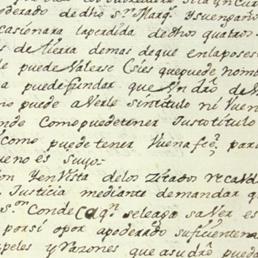 oderado de dho S.r Marq.s y su engaño
casionara la perdida de dhos quatro
s de tierra demas de que en la poses
le puede Valerse
a puede fundar que
no puede aVerle sin titulo ni buen
onde Como puede tener Justo titulo
como puede tener buena fee, para
ueno es suyo:
on en Vista de los
Justicia mediante demandar q
S.or Conde aq.n se le aga saver es
por si o por apoderado suficientem
apeles y Razones que a su dro pueda